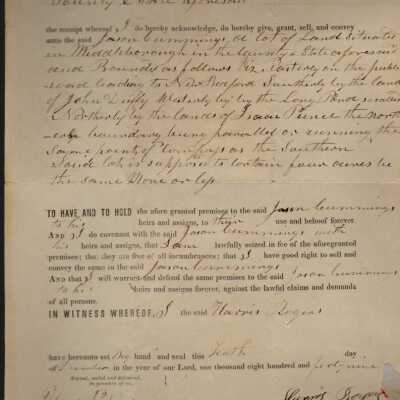 County & State aforesaid
the receipt whereof I do hereby acknowledge, do hereby give, grant, sell, and convey
unto the said Jason Cummings, a lot of Land Situated
in Middleborough in the County & State aforesaid
and Bounded as follows Viz. Easterly on the public
road leading to New Bedford Southerly by the land
of John Duffy Westerly by the Long Pond
Northerly by the lands of Isaac Peirce the North
boundary being parallel or running the
Same point of Compass as the Southern
Said lot is supposed to contain four acres be
the same More or less
TO HAVE AND TO HOLD the afore granted premises to the said Jason Cummings
to his heirs and assigns, to their use and behoof forever.
AND I do covenant with the said Jason Cummings with
his heirs and assigns, that I am lawfully seized in fee of the aforegranted
premises; that they are free of all incumbrances; that I have good right to sell and
convey the same to the said Jason Cummings
And that I will warrant and defend the same premises to the said Jason Cummings
to his heirs and assigns forever, against the lawful claims and demands
of all persons.
IN WITNESS WHEREOF, I the said Harris Rogers
have hereunto set my hand and seal this Tenth day
of December in the year of our Lord, one thousand eight hundred and forty nine
Signed, sealed and delivered,
in presence of us,
Harris Rogers